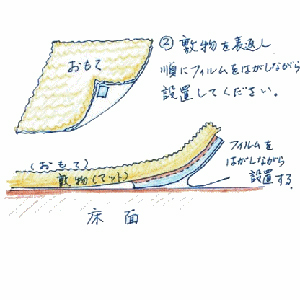 ② 敷物を裏返し
順にフィルムをはがしながら
設置してください。
おもて
フィルムを
はがしながら
設置する。
(おもて)
敷物(マット)
床面